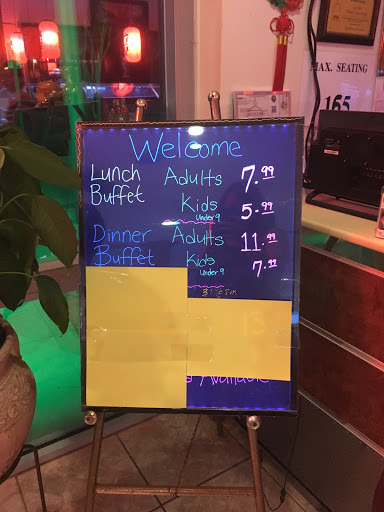 Welcome
Lunch Buffet Adults 7.99
Kids Under 9 5.99
Dinner Buffet Adults 11.99
Kids Under 9 7.99
Available
MAX. SEATING
165